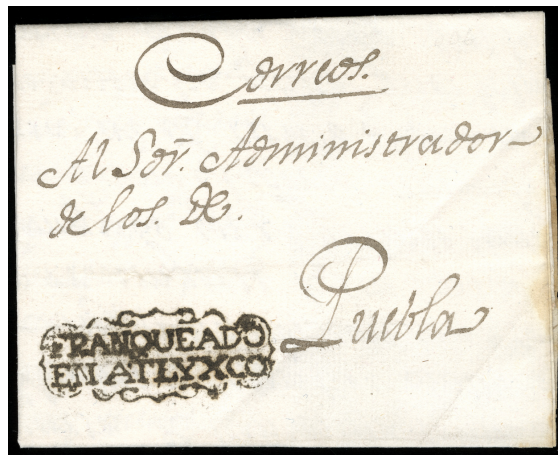 Correos.
Al Sōr. Administrador
de los. De.
Puebla
FRANQUEADO
EN ATLYXCO